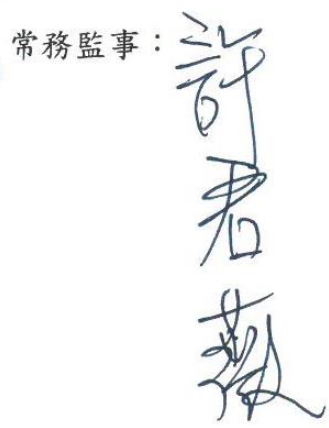 常務監事：
許君薇